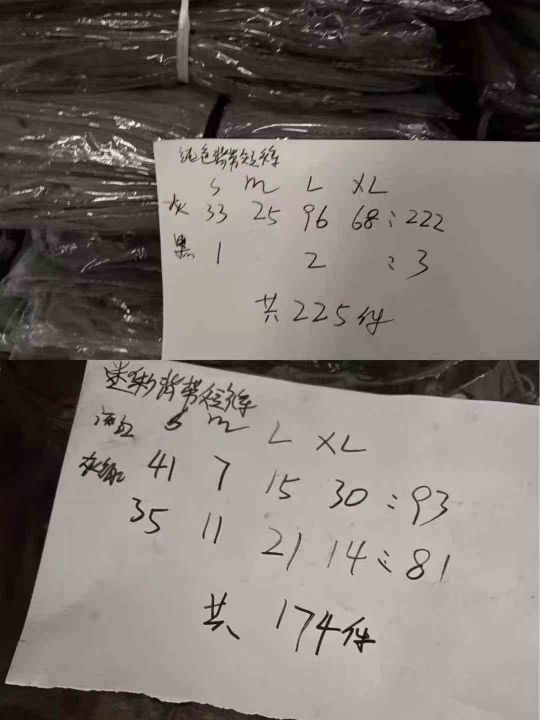 纯色背带短裤
S m L XL
灰 33 25 96 68:222
黑 1 2 :3
共225件
迷彩背带短裤
S m L XL
41 7 15 30:93
35 11 21 14:81
共 174件